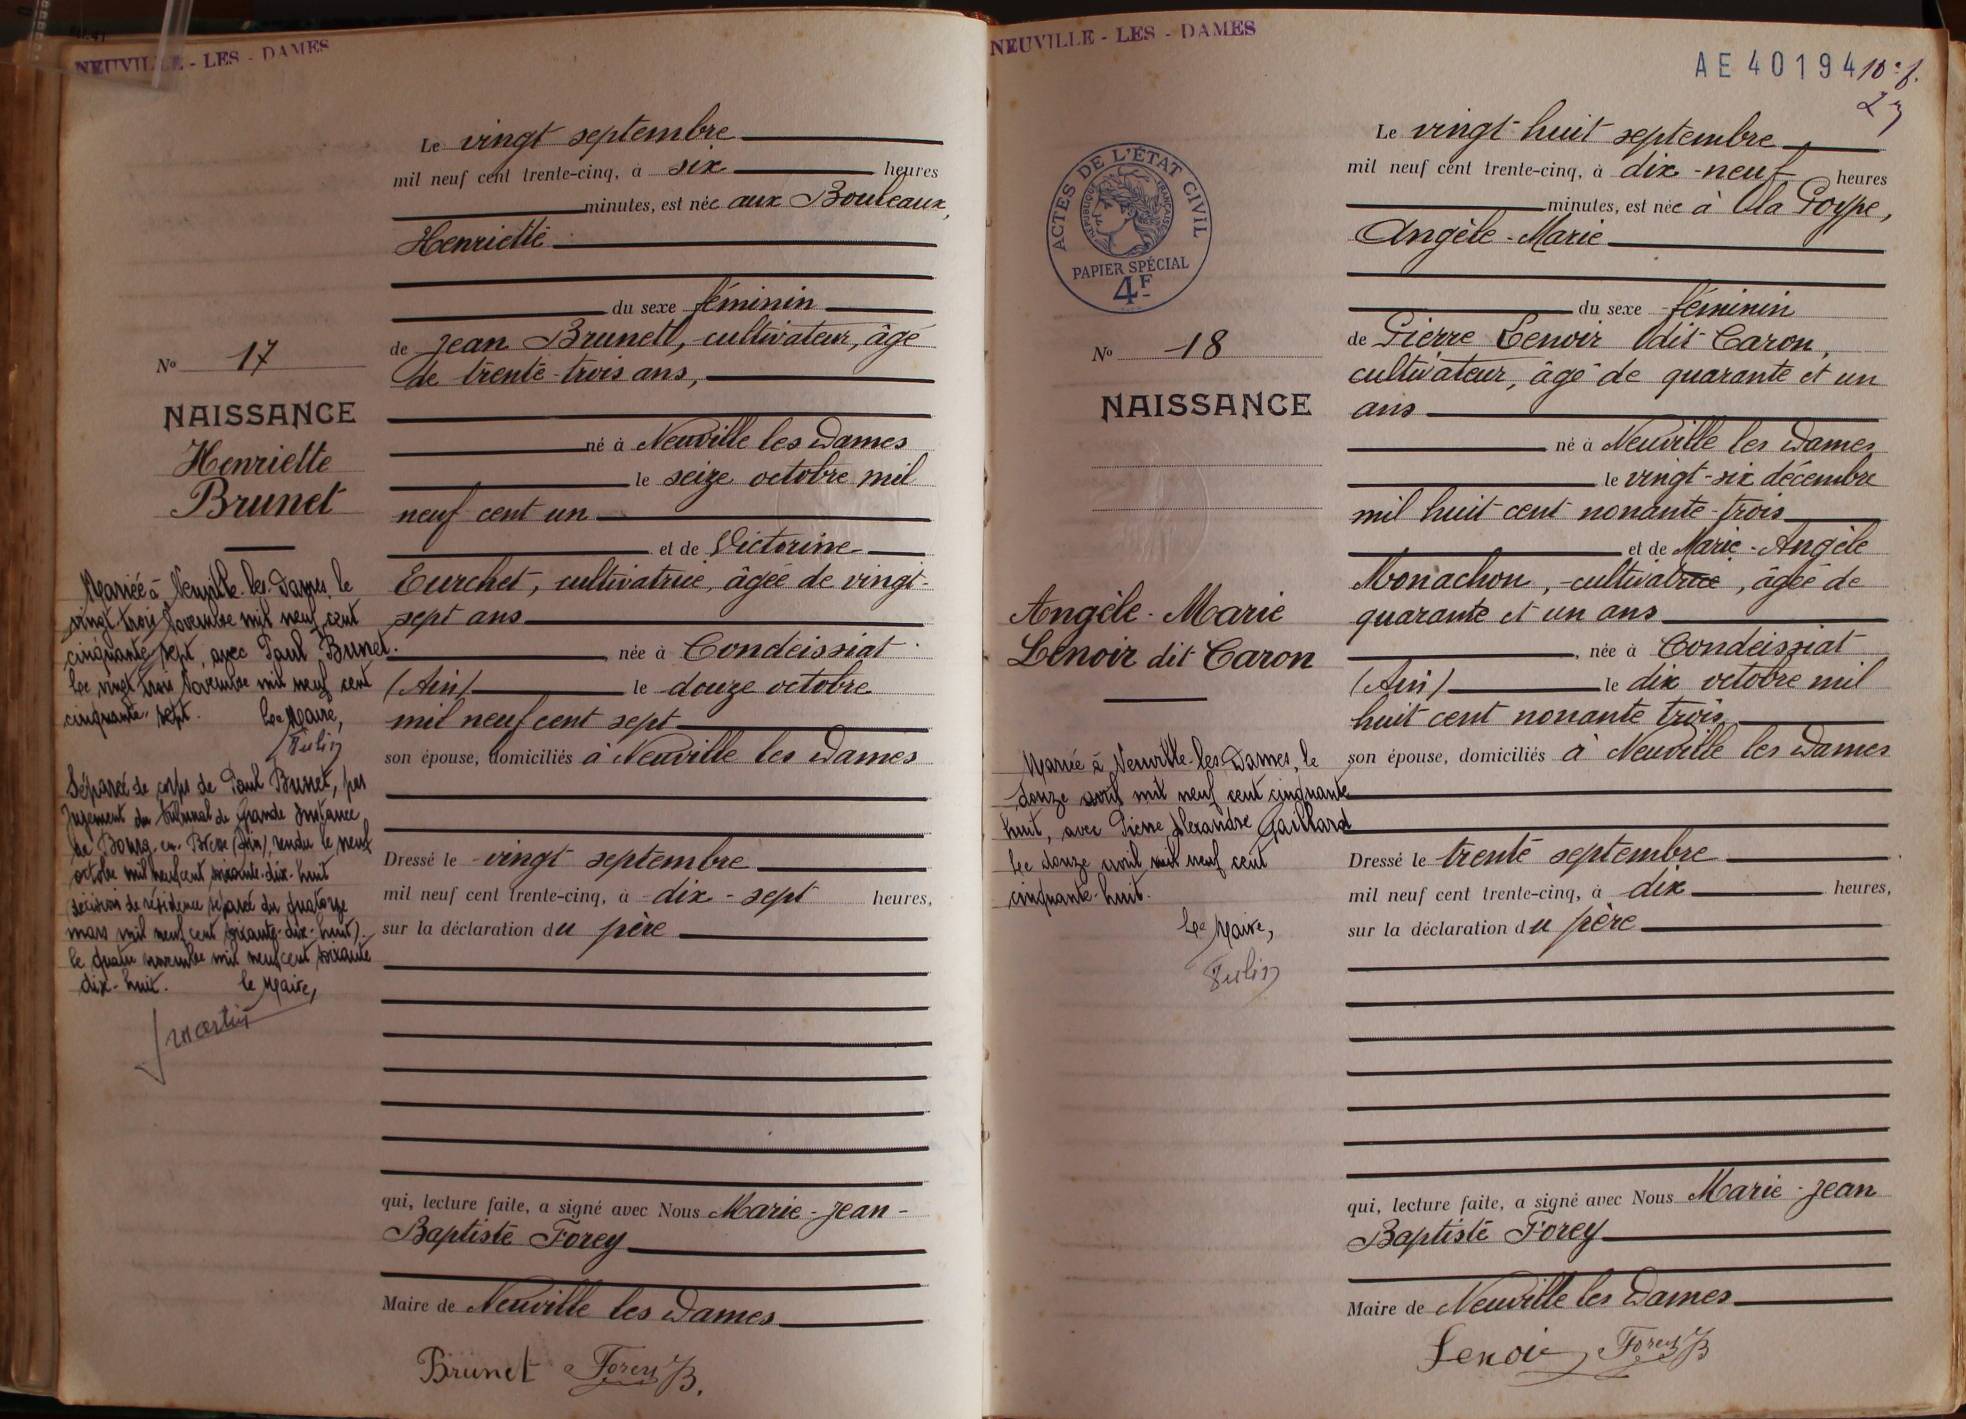 NEUVILLE - LES - DAMES
Le vingt septembre
mil neuf cent trente-cinq, à six heures
minutes, est née aux Bouleaux,
Henriette
du sexe féminin
de Jean Brunet, cultivateur, âgé
de trente-trois ans,
né à Neuville les Dames
le seize octobre mil
neuf cent un
et de Victorine
Curchet, cultivatrice, âgée de vingt-
sept ans
née à Condeissiat
(Ain) le douze octobre
mil neuf cent sept
son épouse, domiciliés à Neuville les Dames
Dressé le vingt septembre
mil neuf cent trente-cinq, à dix-sept heures,
sur la déclaration du père
qui, lecture faite, a signé avec Nous Marie-Jean-
Baptiste Forey
Maire de Neuville les Dames
Brunet Forey B.
No 17
NAISSANCE
Henriette
Brunet
Mariée à Neuville-les-Dames, le
vingt trois Novembre mil neuf cent
cinquante sept, avec Paul Brunet.
Le vingt trois Novembre mil neuf cent
cinquante-sept. Le Maire,
Séparée de corps de Paul Brunet, par
Jugement du Tribunal de Grande Instance
de Bourg-en-Bresse (Ain), rendu le neuf
octobre mil neuf cent soixante-dix-huit
décision de résidence séparée du quatorze
mars mil neuf cent soixante-dix-huit).
le quatre novembre mil neuf cent soixante
dix-huit. le Maire,
J martin
NEUVILLE - LES - DAMES
AE 40194 10e f.
27
ACTES DE L'ÉTAT CIVIL
RÉPUBLIQUE FRANÇAISE
PAPIER SPÉCIAL
4F
Le vingt-huit septembre
mil neuf cent trente-cinq, à dix-neuf heures
minutes, est née à la Poype,
Angèle-Marie
du sexe féminin
de Pierre Lenoir dit Caron,
cultivateur, âgé de quarante et un
ans
né à Neuville les Dames
le vingt-six décembre
mil huit cent nonante-trois
et de Marie-Angèle
Monachon, cultivatrice, âgée de
quarante et un ans
, née à Condeissiat
(Ain) le dix octobre mil
huit cent nonante trois
son épouse, domiciliés à Neuville les Dames
Dressé le trente septembre
mil neuf cent trente-cinq, à dix heures,
sur la déclaration du père
qui, lecture faite, a signé avec Nous Marie-Jean
Baptiste Forey
Maire de Neuville les Dames
Lenoir Forey B
No 18
NAISSANCE
Angèle-Marie
Lenoir dit Caron
Mariée à Neuville-les-Dames, le
douze avril mil neuf cent cinquante
huit, avec Pierre Alexandre Gaillard
Le douze avril mil neuf cent
cinquante-huit.
Le Maire,